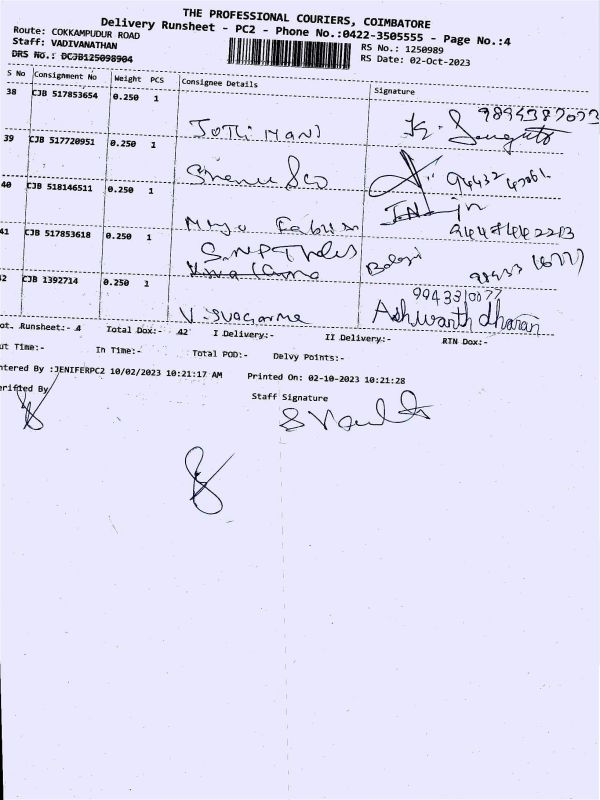 THE PROFESSIONAL COURIERS, COIMBATORE
Delivery Runsheet - PC2 - Phone No.:0422-3505555 - Page No.:4
Route: COKKAMPUDUR ROAD
RS No.: 1250989
Staff: VADIVANATHAN
RS Date: 02-Oct-2023
DRS No.: DCJB125098904
S No Consignment No Weight PCS Consignee Details Signature
38 CJB 517853654 0.250 1
9894387073
JOTLI MANI
39 CJB 517720951 0.250 1
94432
40 CJB 518146511 0.250 1
9448442213
41 CJB 517853618 0.250 1
Balaji
2 CJB 1392714 0.250 1
9943310077
Visvagarma Ashwanth dharan
ot. Runsheet:- 4 Total Dox:- 42 I Delivery:- II Delivery:- RTN Dox:-
ut Time:- In Time:- Total POD:- Delvy Points:-
ntered By :JENIFERPC2 10/02/2023 10:21:17 AM Printed On: 02-10-2023 10:21:28
erified By
Staff Signature